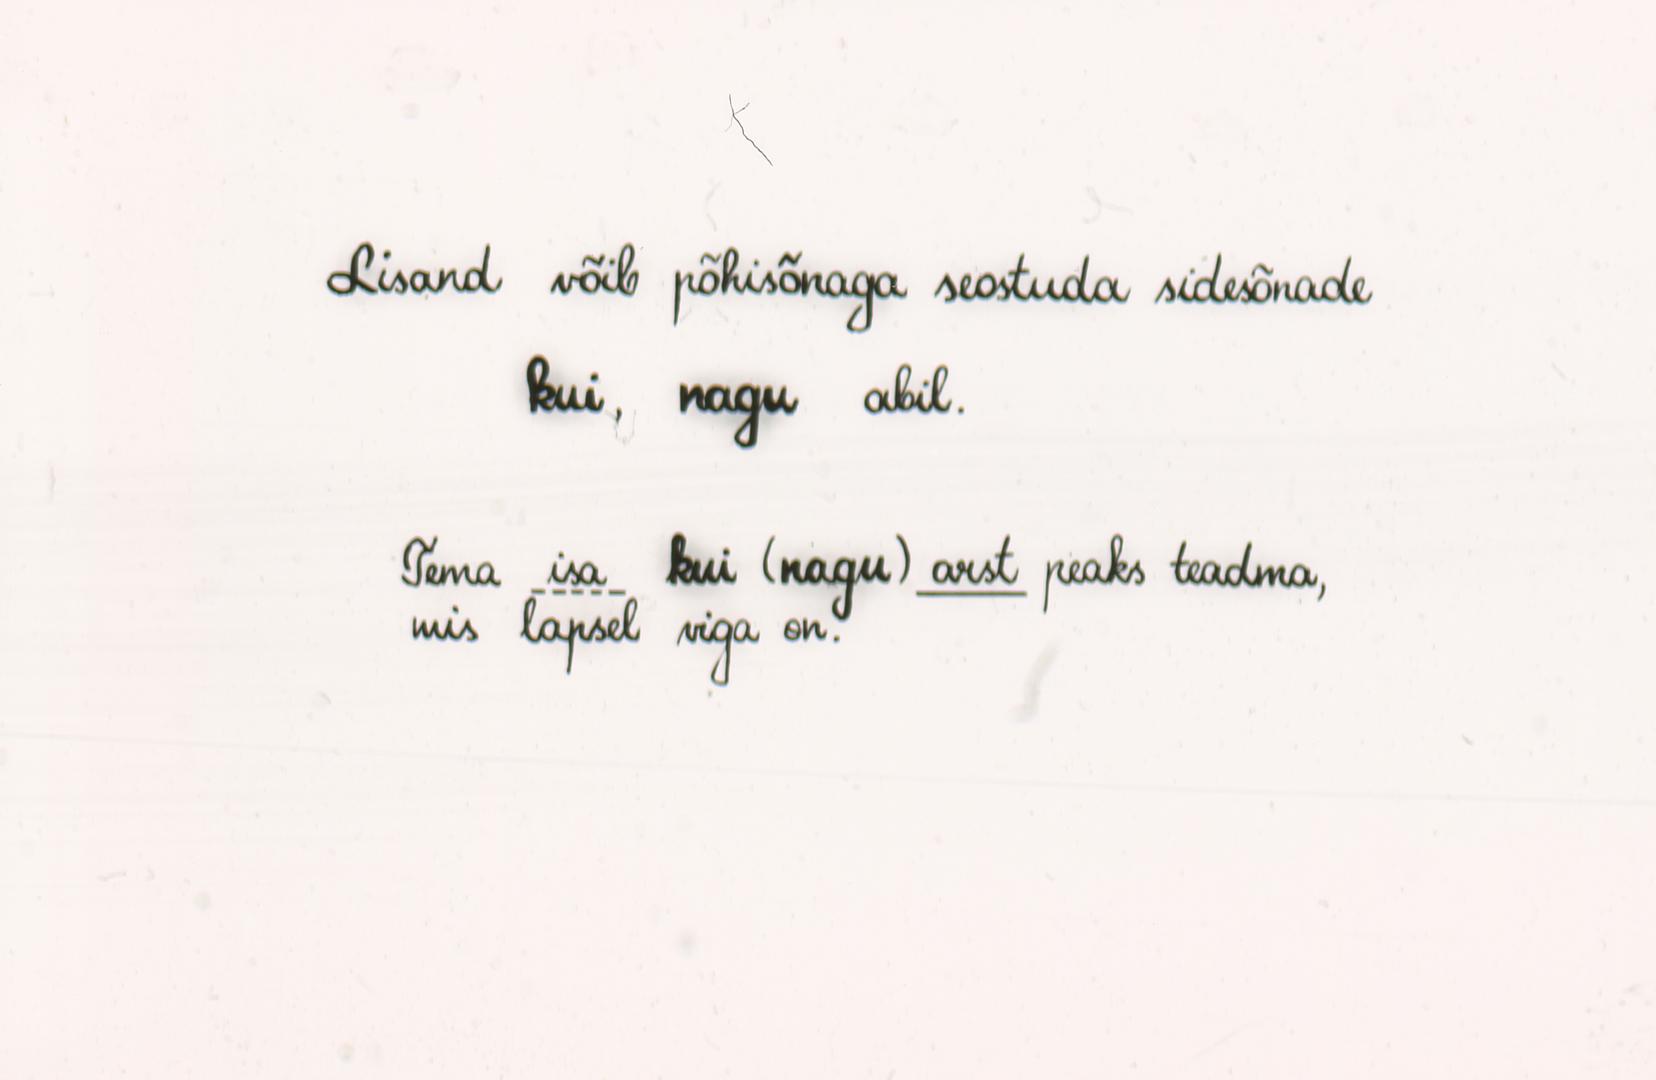 Lisand võib põhisõnaga seostuda sidesõnade
kui, nagu abil.
Tema isa kui (nagu) arst peaks teadma,
mis lapsel viga on.